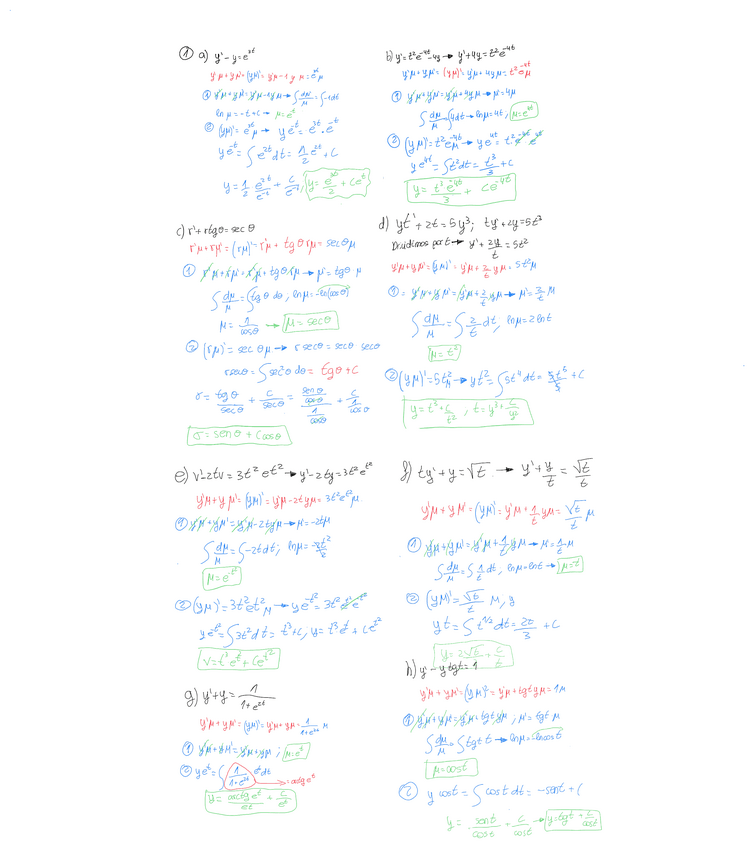 ① a) y' - y = e^3t
y'μ + yμ' = (yμ)' = y'μ - 1 y μ = e^3t μ
① y'μ + yμ' = y'μ - 1yμ → ∫ dμ/μ = ∫ -1dt
ln μ = -t + c → μ = e^-t
② (yμ)' = e^3t μ → y e^-t = e^3t · e^-t
y e^-t = ∫ e^2t dt = 1/2 e^2t + C
y = 1/2 e^2t/e^-t + C/e^-t ; y = e^3t/2 + C e^t
b) y' = t² e^-4t - 4y → y' + 4y = t² e^-4t
y'μ + yμ' = (yμ)' = y'μ + 4yμ = t² e^-4t μ
① y'μ + yμ' = y'μ + 4yμ → μ' = 4μ
∫ dμ/μ = ∫ 4dt → ln μ = 4t, μ = e^4t
② (yμ)' = t² e^-4t μ → y e^4t = t² · e^-4t e^4t
y e^4t = ∫ t² dt = t³/3 + C
y = t³ e^-4t/3 + C e^-4t
c) r' + r tgθ = sec θ
r'μ + rμ' = (rμ)' = r'μ + tgθ rμ = secθ μ
① r'μ + rμ' = r'μ + tgθ rμ → μ' = tgθ μ
∫ dμ/μ = ∫ tgθ dθ, ln μ = -ln(cosθ)
μ = 1/cosθ → μ = secθ
② (rμ)' = sec θμ → r secθ = secθ secθ
r secθ = ∫ sec²θ dθ = tgθ + C
r = tgθ/secθ + C/secθ = (senθ/cosθ)/(1/cosθ) + C/(1/cosθ)
r = senθ + C cosθ
d) yt' + 2t = 5y³ ; ty' + 2y = 5t³
Dividimos por t → y' + 2y/t = 5t²
y'μ + yμ' = (yμ)' = y'μ + 2/t yμ = 5t²μ
① = y'μ + yμ' = y'μ + 2/t yμ → μ' = 2/t μ
∫ dμ/μ = ∫ 2/t dt, ln μ = 2 ln t
μ = t²
② (yμ)' = 5t²μ → yt² = ∫ 5t⁴ dt = 5t⁵/5 + C
y = t³ + C/t² , t = y³ + C/y²
e) v' - 2tv = 3t² e^t² → y' - 2ty = 3t² e^t²
y'μ + yμ' = (yμ)' = y'μ - 2t yμ = 3t² e^t² μ
① y'μ + yμ' = y'μ - 2tyμ → μ' = -2tμ
∫ dμ/μ = ∫ -2t dt ; ln μ = -2t²/2
μ = e^-t²
② (yμ)' = 3t² e^t² μ → y e^-t² = 3t² e^t² e^-t²
y e^-t² = ∫ 3t² dt = t³ + C, y = t³ e^t² + C e^t²
v = t³ e^t² + C e^t²
f) ty' + y = √t → y' + y/t = √t/t
y'μ + yμ' = (yμ)' = y'μ + 1/t yμ = √t/t μ
① y'μ + yμ' = y'μ + 1/t yμ → μ' = 1/t μ
∫ dμ/μ = ∫ 1/t dt, ln μ = ln t → μ = t
② (yμ)' = √t/t μ, y
y t = ∫ t^1/2 dt = 2t/3 + C
y = 2√t/3 + C/t
g) y' + y = 1/(1 + e^2t)
y'μ + yμ' = (yμ)' = y'μ + yμ = 1/(1+e^2t) μ
① y'μ + yμ' = y'μ + yμ ; μ = e^t
② y e^t = ∫ 1/(1+e^2t) e^t dt → = arctg e^t
y = arctg e^t/e^t + C/e^t
h) y' - y tgt = 1
y'μ + yμ' = (yμ)' = y'μ + tgt yμ = 1μ
① y'μ + yμ' = y'μ + tgt yμ ; μ' = tgt μ
∫ dμ/μ = ∫ tgt t → ln μ = -ln cost
μ = cost
② y cost = ∫ cost dt = -sent + C
y = sent/cost + C/cost → y = tgt + C/cost